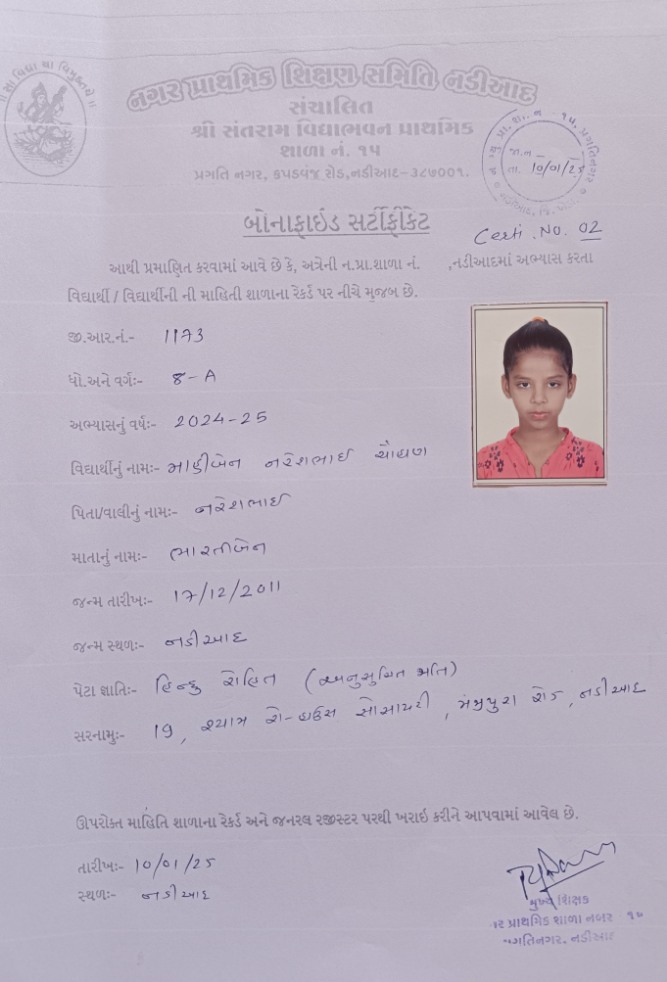 સા વિદ્યા યા વિમુક્તયે
નગર પ્રાથમિક શિક્ષણ સમિતિ નડીઆદ
સંચાલિત
શ્રી સંતરામ વિદ્યાભવન પ્રાથમિક
શાળા નં. ૧૫
પ્રગતિ નગર, કપડવંજ રોડ,નડીઆદ-૩૮૭૦૦૧.
જા.ન
તા. 10/01/25
બોનાફાઇડ સર્ટીફીકેટ
Certi. No. 02
આથી પ્રમાણિત કરવામાં આવે છે કે, અત્રેની ન.પ્રા.શાળા નં. ,નડીઆદમાં અભ્યાસ કરતા
વિદ્યાર્થી / વિદ્યાર્થીની ની માહિતી શાળાના રેકર્ડ પર નીચે મુજબ છે.
જી.આર.નં.- 1173
ધો.અને વર્ગ:- 8-A
અભ્યાસનું વર્ષ:- 2024-25
વિદ્યાર્થીનું નામ:- નરેશભાઈ ચૌહાણ
પિતા/વાલીનું નામ:- નરેશભાઈ
માતાનું નામ:- ભારતીબેન
જન્મ તારીખ:- 17/12/2011
જન્મ સ્થળ:- નડીઆદ
પેટા જ્ઞાતિ:- હિન્દુ રોહિત (અનુસુચિત જાતિ)
સરનામુ:- 19, શ્યામ રો-હાઉસ સોસાયટી, રોડ, નડીઆદ
ઉપરોક્ત માહિતિ શાળાના રેકર્ડ અને જનરલ રજીસ્ટર પરથી ખરાઇ કરીને આપવામાં આવેલ છે.
તારીખ:- 10/01/25
સ્થળ:- નડીઆદ
મુખ્ય શિક્ષક
પ્રાથમિક શાળા નંબર ૧૫
પ્રગતિનગર, નડીઆદ